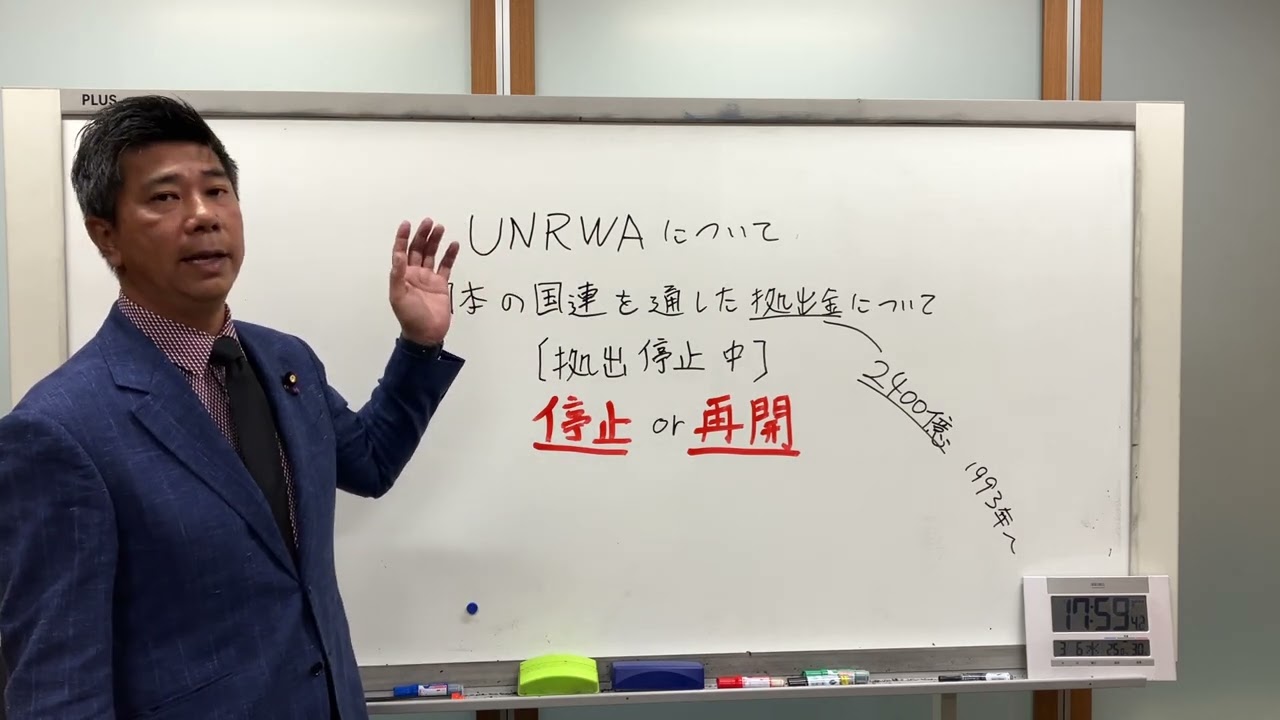 PLUS
UNRWAについて
本の国連を通した拠出金について
[拠出停止中]
停止 or 再開
2400億
1993年~
SEIKO
17:59 42
3 6 水 25 30